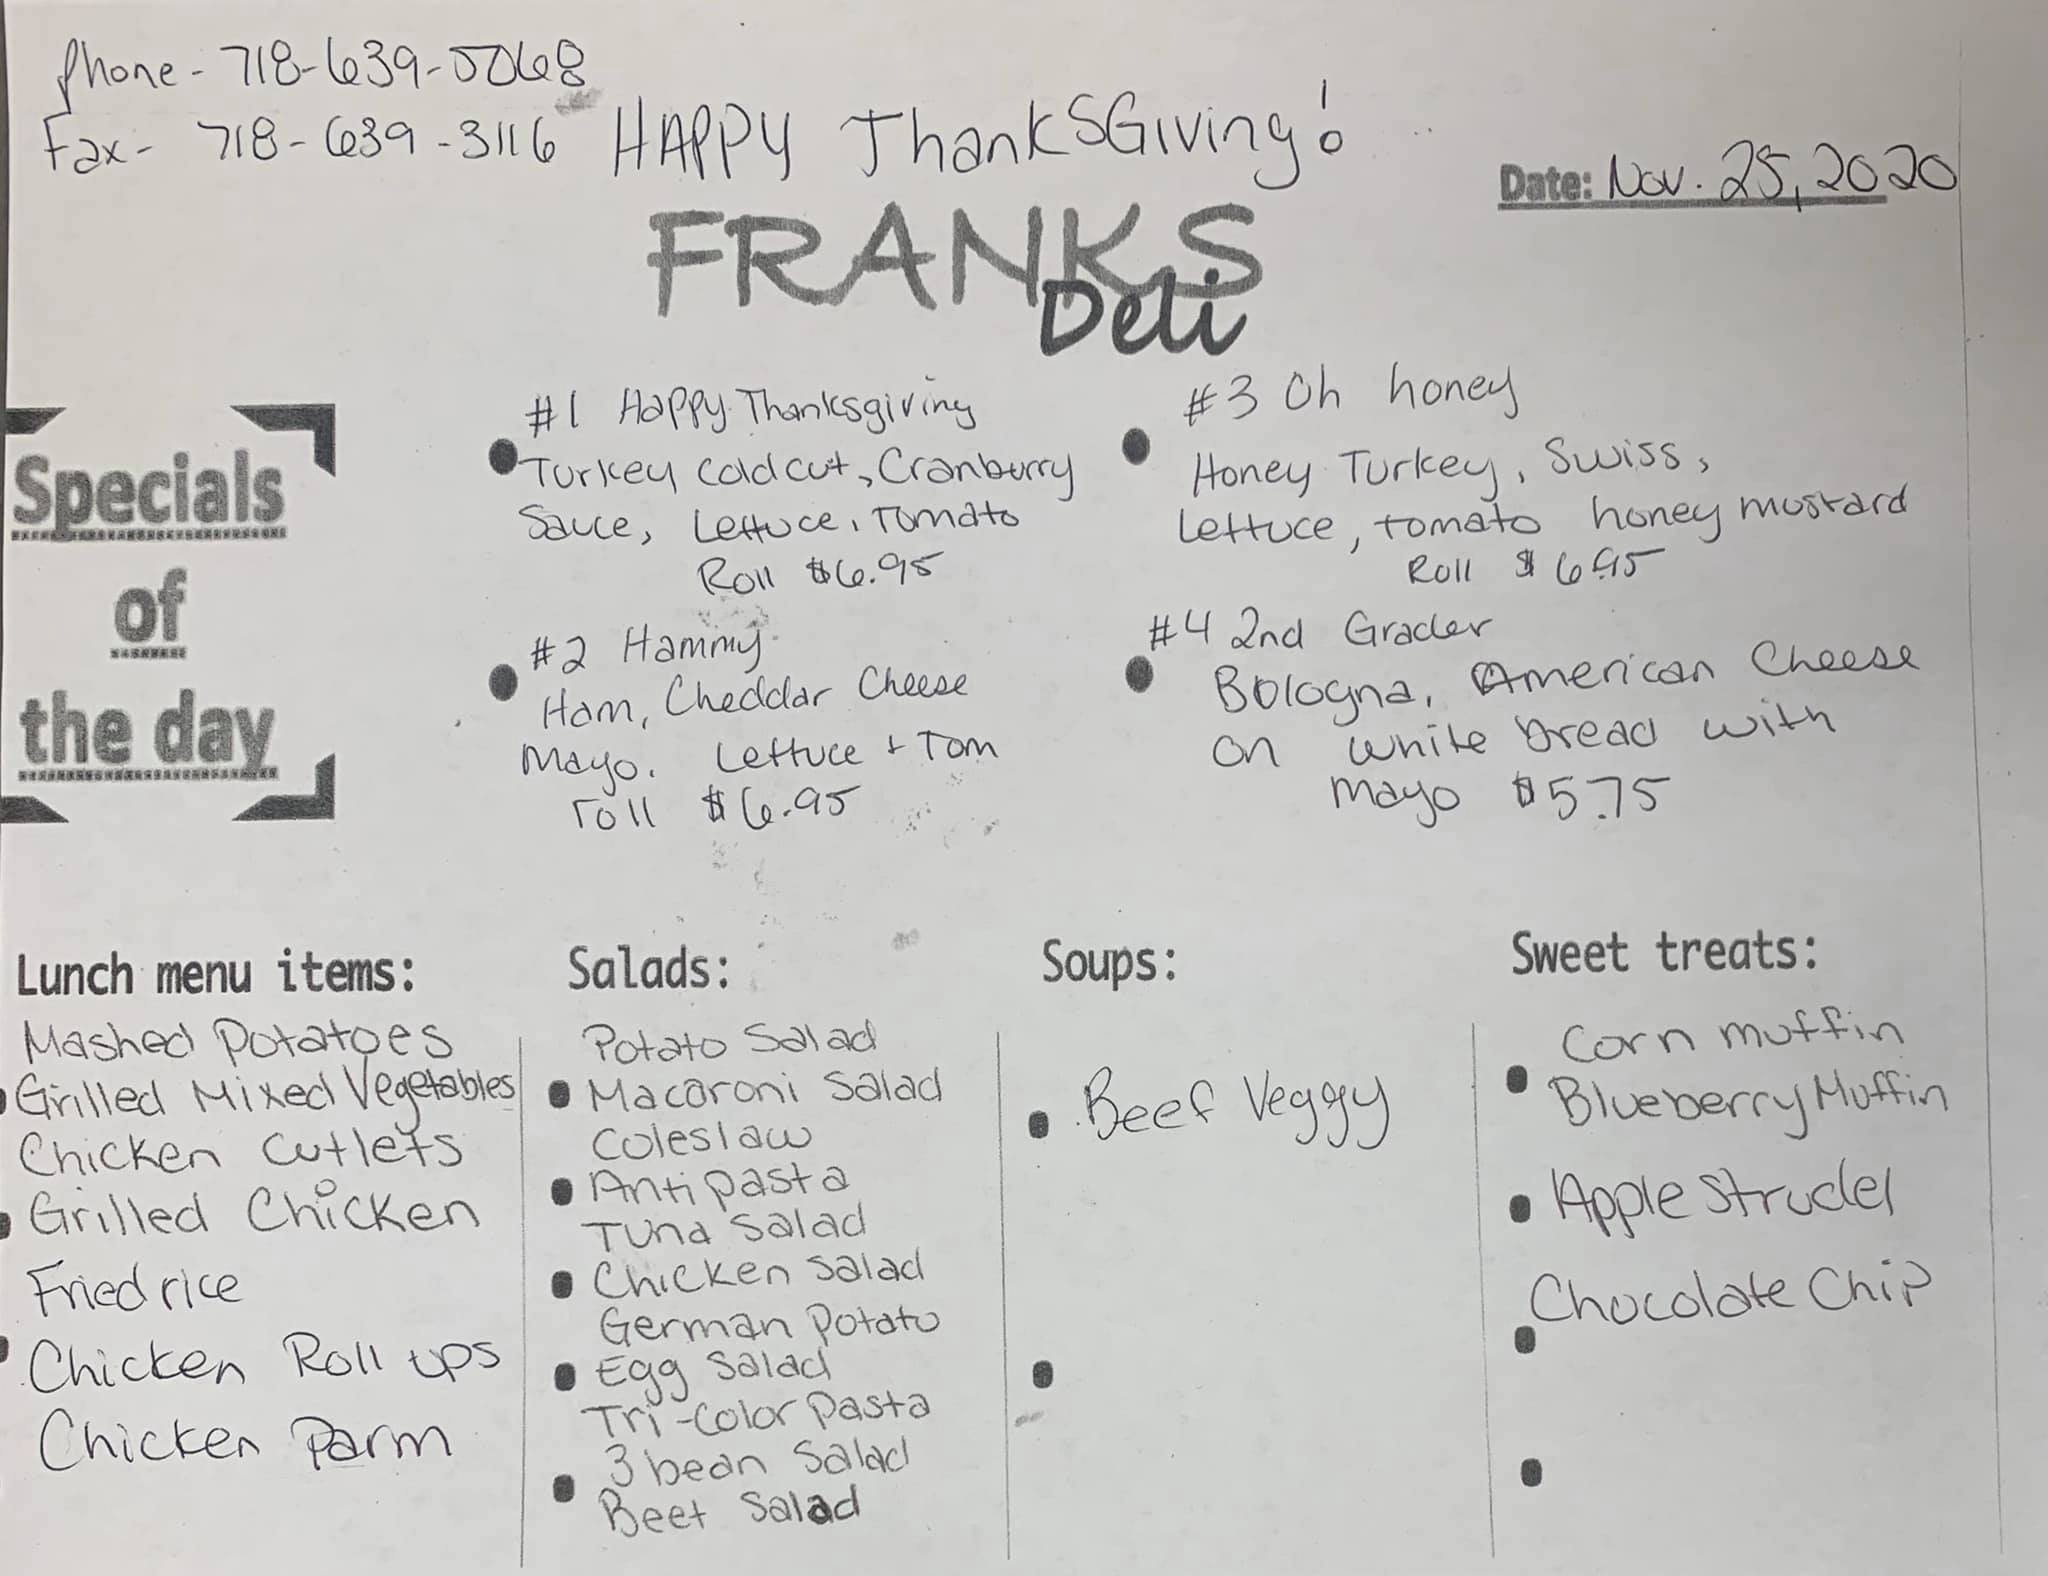 Phone - 718-639-5068
Fax - 718-639-3116
HAPPY ThankSGiving!
Date: Nov. 25, 2020
FRANKS
Deli
Specials
of
the day
#1 Happy Thanksgiving
Turkey Cold cut, Cranburry
Sauce, Lettuce, Tomato
Roll $6.95
#2 Hammy
Ham, Cheddar Cheese
Mayo. Lettuce + Tom
roll $6.95
#3 Oh honey
Honey Turkey, Swiss,
Lettuce, tomato honey mustard
Roll $6.95
#4 2nd Grader
Bologna, American Cheese
on white bread with
mayo $5.75
Lunch menu items:
Mashed Potatoes
Grilled Mixed Vegetables
Chicken Cutlets
Grilled Chicken
Fried rice
Chicken Roll ups
Chicken Parm
Salads:
Potato Salad
Macaroni Salad
Coleslaw
Antipasta
Tuna Salad
Chicken Salad
German Potato
Egg Salad
Tri-Color Pasta
3 bean Salad
Beet Salad
Soups:
Beef Veggy
Sweet treats:
Corn muffin
Blueberry Muffin
Apple Strudel
Chocolate Chip